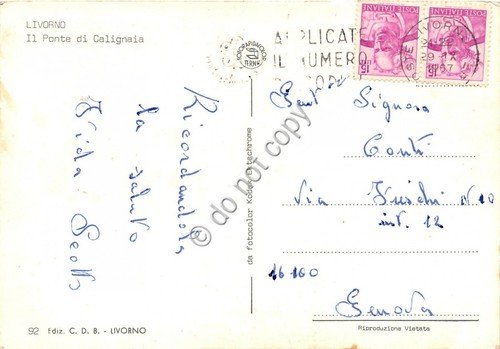 LIVORNO
Il Ponte di Calignaia
APPLICATE
IL NUMERO
POSTE ITALIANE
LIVORNO
1967
Gent. Signora
Conti
Via N 10
int. 12
16100
Genova
Ricordandola
la saluto
Scotto
da fotocolor Kodak Ektachrome
© do not copy
92 Ediz. C. D. B. - LIVORNO
Riproduzione Vietata